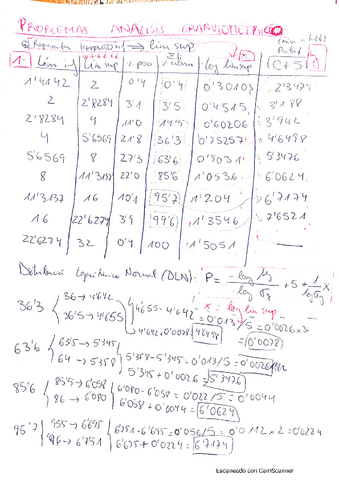 PROBLEMAS ANALISIS GRANULOMETRICO
① Representar → lim sup
1- Lim inf Lim sup % peso % acum log lim sup (C+5) y
1'4142 2 0'4 0'4 0'30103 2'3479
2 2'8284 3'1 3'5 0'4515 3'188
2'8284 4 11'0 14'5 0'60206 3'942
4 5'6569 21'8 36'3 0'75257 4'6498
5'6569 8 27'3 63'6 0'9031 5'3476
8 11'3137 22'0 85'6 1'0536 6'0624
11'3137 16 10'1 95'7 1'204 6'7174
16 22'6274 3'9 99'6 1'3546 7'6521
22'6274 32 0'4 100 1'5051 —
Distribución Logarítmico Normal (DLN): P = - log Mg / log σg + 5 + 1 / log σg x
x = log lim sup
36'3 36 → 4'642 36'5 → 4'655 4'655 - 4'642 = 0'013 / 5 = 0'0026 x 3 = 0'0078
4'642 + 0'0078 = 4'6498
63'6 635 → 5'345 64 → 5'358 5'358 - 5'345 = 0'013 / 5 = 0'0026
5'345 + 0'0026 = 5'3476
85'6 85'5 → 6'058 86 → 6'080 6'080 - 6'058 = 0'022 / 5 = 0'0044
6'058 + 0'0044 = 6'0624
95'7 955 → 6'695 96 → 6'751 6'751 - 6'695 = 0'056 / 5 = 0'0112 x 2 = 0'0224
6'695 + 0'0224 = 6'7174
Escaneado con CamScanner